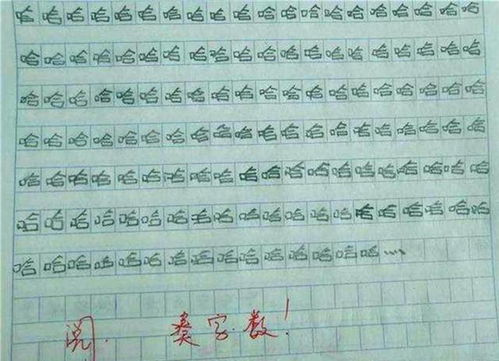 哈哈哈哈哈哈哈哈哈哈哈哈哈哈哈哈哈哈哈哈
哈哈哈哈哈哈哈哈哈哈哈哈哈哈哈哈哈哈哈哈
哈哈哈哈哈哈哈哈哈哈哈哈哈哈哈哈哈哈哈哈
哈哈哈哈哈哈哈哈哈哈哈哈哈哈哈哈哈哈哈哈
哈哈哈哈哈哈哈哈哈哈哈哈哈哈哈哈哈哈哈哈
哈哈哈哈哈哈哈哈哈哈哈哈哈哈哈哈哈哈哈哈
哈哈哈哈哈哈哈哈哈哈哈哈哈哈哈....
阅. 凑字数!